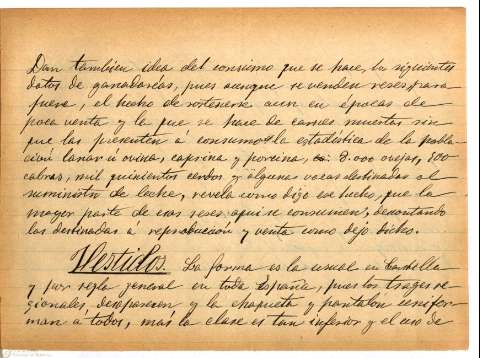 Dan tambien idea del consumo que se hace, los siguientes
datos de ganaderías, pues aunque se venden reses para
fuera, el hecho de sostenerse aun en épocas de
poca venta y la que se hace de carnes muertas sin
que las presenten á consumo la estadística de la pobla-
ción lanar ú ovina, caprina y porcina, 3.000 ovejas, 700
cabras, mil quinientos cerdos y algunas vacas destinadas al
suministro de leche, revela como dijo ese hecho, que la
mayor parte de esas reses aquí se consumen, descontando
las destinadas á reproducción y venta como dejo dicho.
Vestidos. La forma es la usual en Castilla
y por regla general en toda España, pues los trages re-
gionales desaparecen y la chaqueta y pantalon unifor-
man á todos, más la clase es tan inferior y el uso de